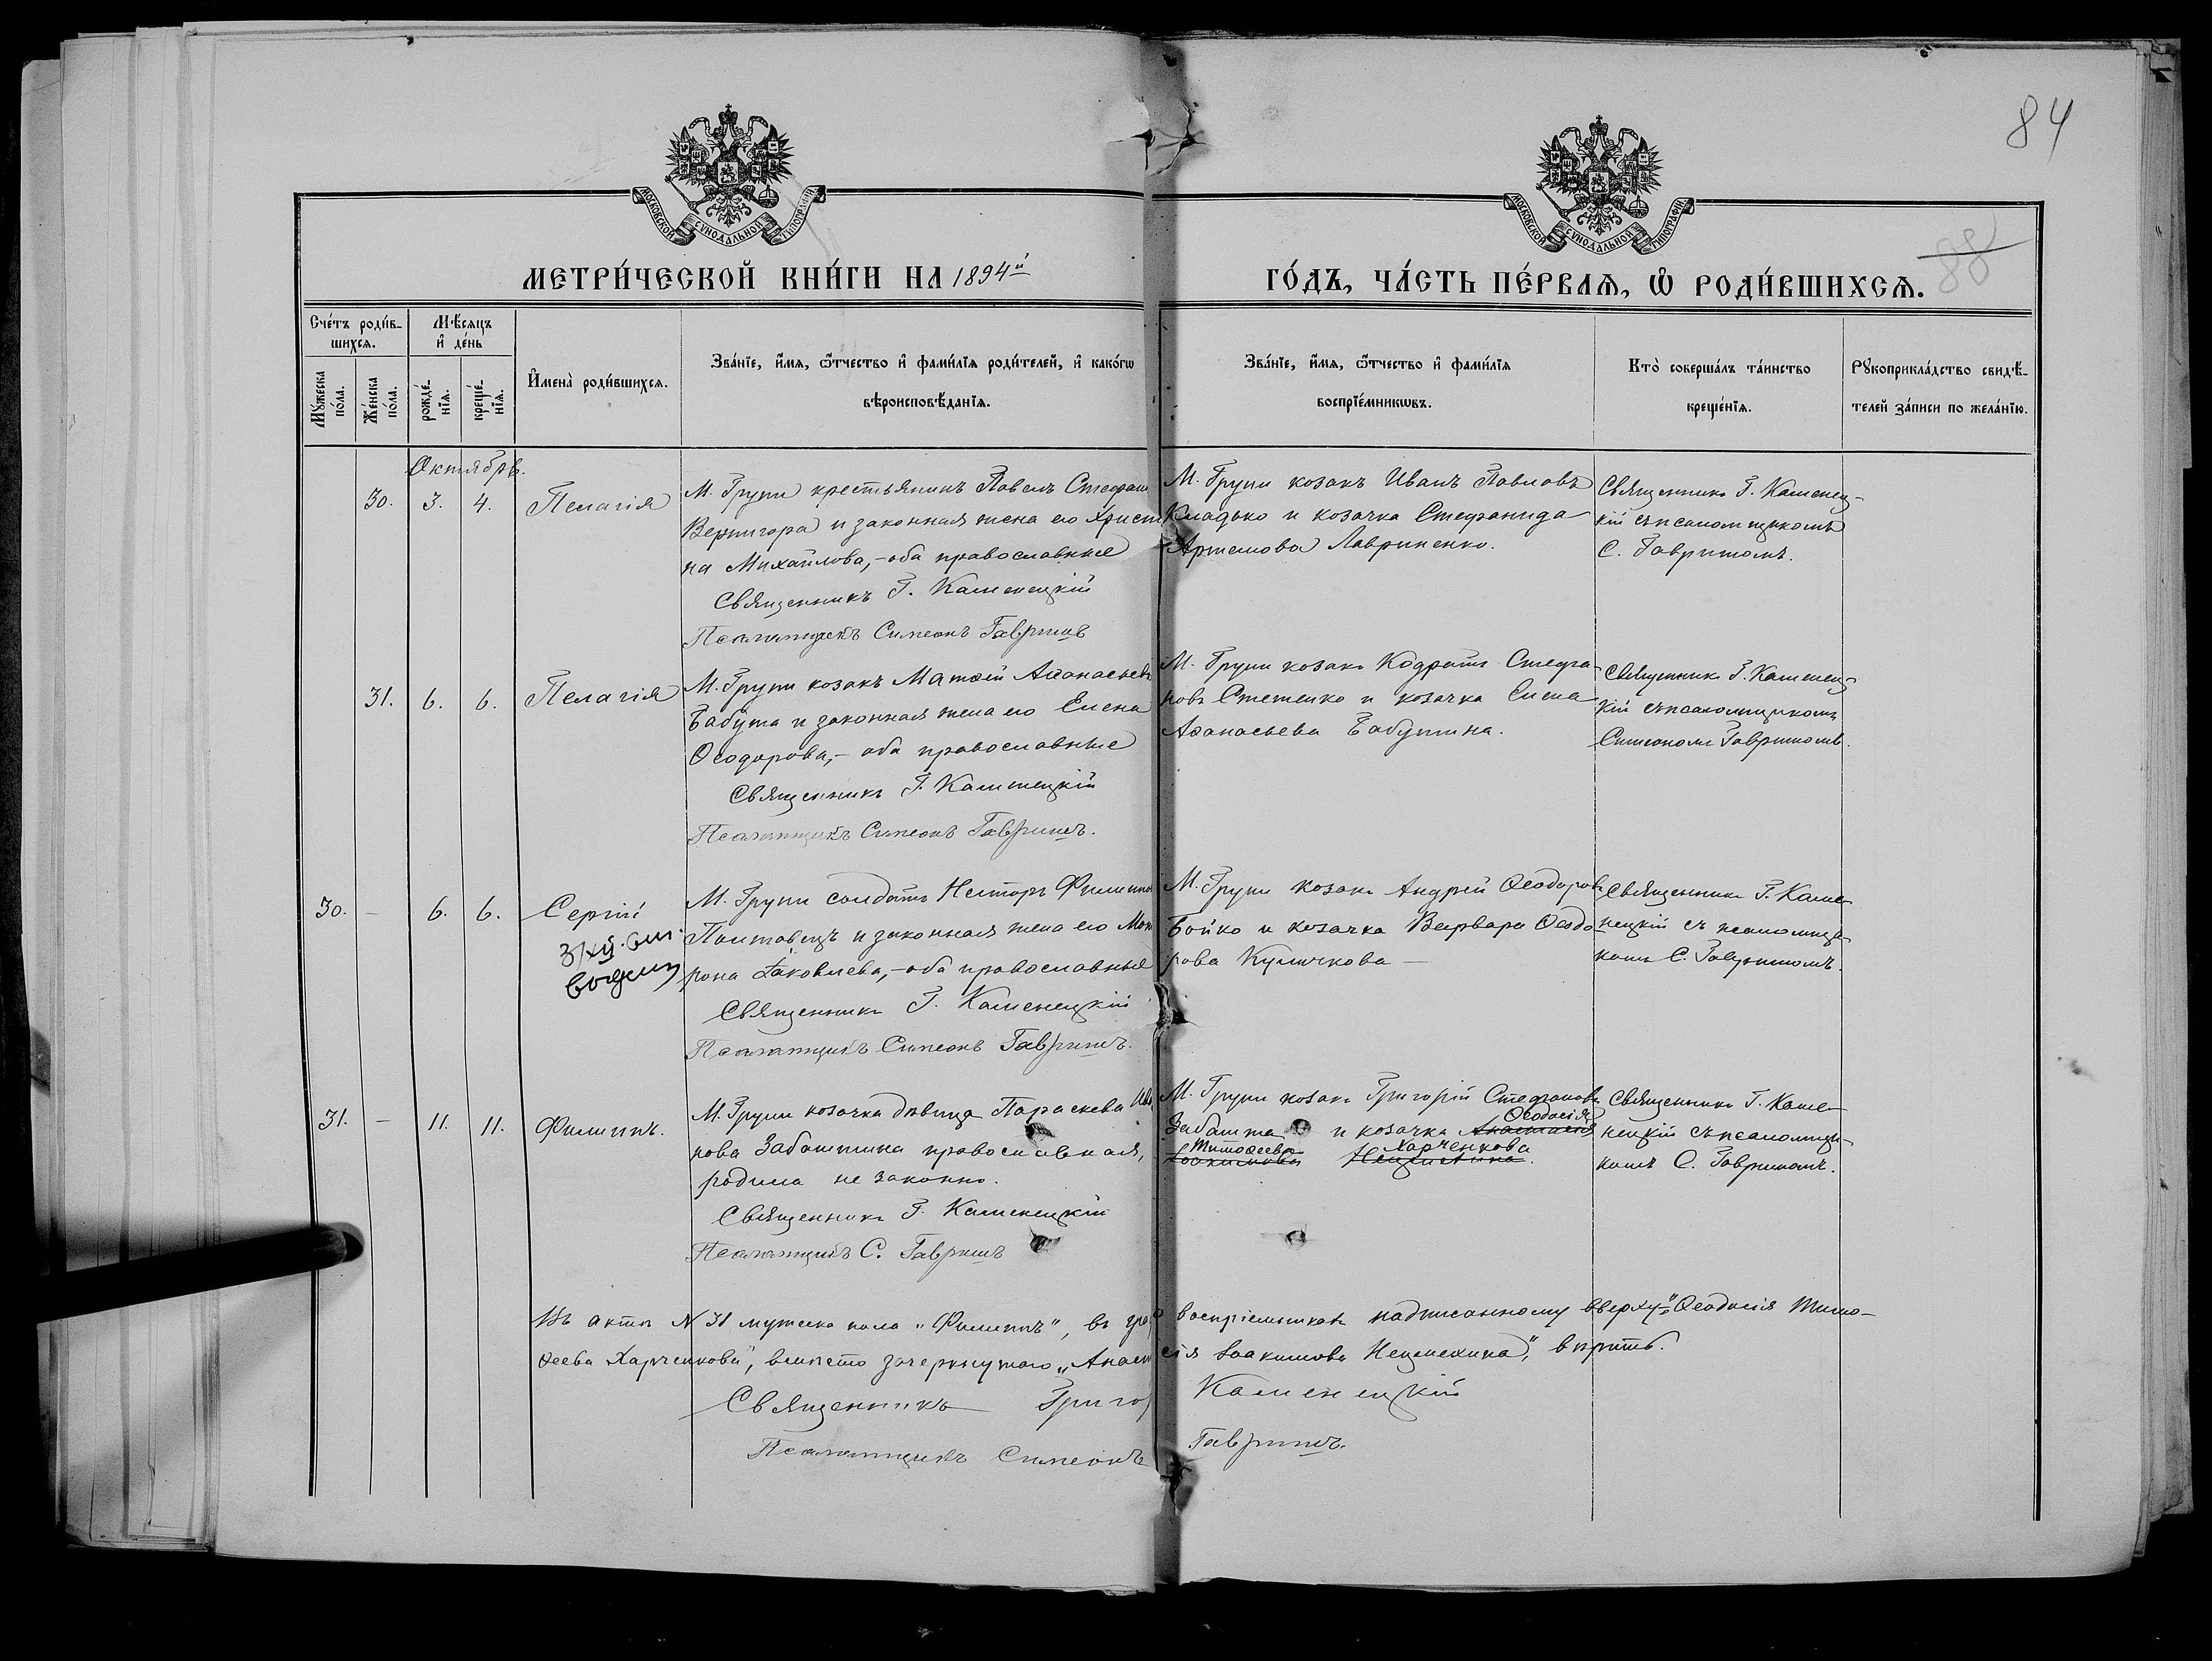 84
88
МОСКОВСКОЙ СУНОДАЛЬНОЙ ТИПОГРАФІИ
МОСКОВСКОЙ СУНОДАЛЬНОЙ ТИПОГРАФІИ
МЕТРИ́ЧЕСКОЙ КНИ́ГИ НА 1894й
ГО́ДЪ, ЧА́СТЬ ПЕ́РВАѦ, Ѡ҆ РОДИ́ВШИХСѦ.
Сче́тъ роди́в-
шихсѧ.
Мꙋ́жеска
по́ла.
Же́нска
по́ла.
Мѣ́сѧцъ
и҆ де́нь
рожде́-
нїѧ.
креще́-
нїѧ.
И҆мена̀ роди́вшихсѧ.
Зва́нїе, и҆́мѧ, ѻ҆́тчество и҆ фами́лїѧ роди́телей, и҆ како́гѡ
вѣроисповѣ́данїѧ.
Зва́нїе, и҆́мѧ, ѻ҆́тчество и҆ фами́лїѧ
воспрїе́мникѡвъ.
Кто̀ соверша́лъ та́инство
креще́нїѧ.
Рꙋкоприкла́дство свидѣ́-
телей за́писи по жела́нїю.
Октябрь.
30. 3. 4. Пелагія
М. Груни крестьянинъ Павелъ Стефан
Вернигора и законная жена его Христи
на Михайлова,-оба православные
Священникъ Г. Каменецкій
Псаломщикъ Симеонъ Гавришъ
М. Груни козакъ Иванъ Павловъ
Кладько и козачка Стефанида
Артемова Лавриненко.
Священникъ Г. Каменец-
кій съ псаломщикомъ
С. Гавришомъ.
31. 6. 6. Пелагія
М. Груни козакъ Матѳей Аѳанасьевъ
Бабута и законная жена его Елена
Ѳеодорова,- оба православные
Священникъ Г. Каменецкій
Псаломщикъ Симеонъ Гавришъ.
М. Груни козакъ Кодратъ Стефа-
новъ Стеценко и козачка Елена
Аѳанасьева Бабутина.
Священникъ Г. Каменец-
кій съ псаломщикомъ
Симеономъ Гавришомъ.
30. - 6. 6. Сергій
М. Груни солдатъ Несторъ Филиппов
Полтавецъ и законная жена его Мат
рона Іаковлева,-оба православные
Священникъ Г. Каменецкій
Псаломщикъ Симеонъ Гавришъ.
М. Груни козакъ Андрей Ѳеодоровъ
Бойко и козачка Варвара Ѳеодо-
рова Куличкова -
Священникъ Г. Каме-
нецкій съ псаломщи-
комъ С. Гавришомъ.
31. - 11. 11. Филиппъ.
М. Груни козачка дѣвица Параскева Ива
нова Забаштина православная,
родила не законно.
Священникъ Г. Каменецкій
Псаломщикъ С. Гавришъ
М. Груни козакъ Григорій Стефановъ
Ѳеодосія
Забашта и козачка Анастасія
Тимоѳеева Харченкова
Іоакимова
Священникъ Г. Каме-
нецкій съ псаломщи-
комъ С. Гавришомъ.
Въ актѣ N 31 мужска пола „Филиппъ", въ граф воспріемниковъ надписанному вверху „Ѳеодосія Тимо-
ѳеева Харченкова", вмѣсто зачеркнутаго „Анаста сія Іоакимова", вѣрить.
Священникъ Григо Каменецкій
Псаломщикъ Симеонъ Гавришъ.